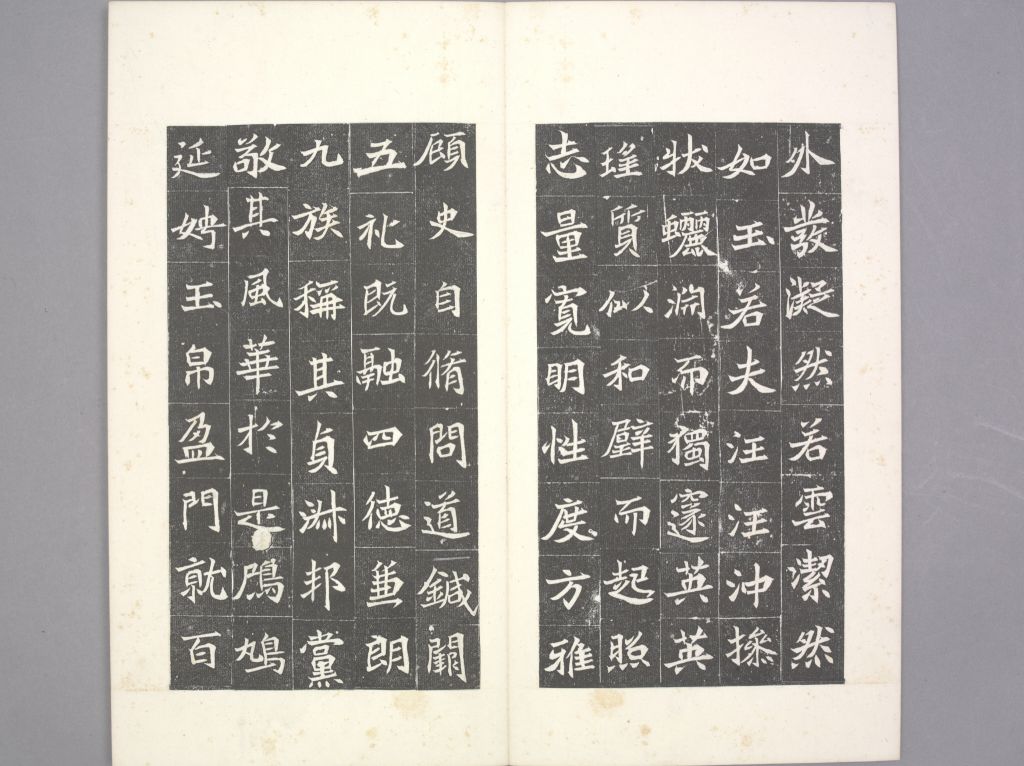 外發凝然若雲潔然
如玉若夫汪汪沖操
狀驪淵而獨邃英英
瑤質似和璧而起照
志量寬明性度方雅
顧史自脩問道鍼
五礼既融四德兼朗
九族稱其貞淑邦黨
敬其風華於是鴈鳩
延娉玉帛盈門就百